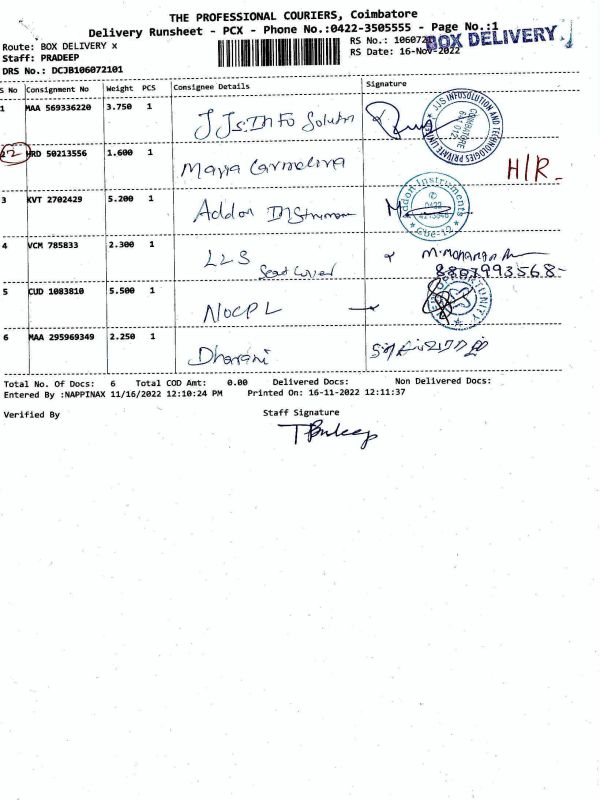 THE PROFESSIONAL COURIERS, Coimbatore
Delivery Runsheet - PCX - Phone No.:0422-3505555 - Page No.:1
BOX DELIVERY
Route: BOX DELIVERY x RS No.: 1060721
Staff: PRADEEP RS Date: 16-Nov-2022
DRS No.: DCJB106072101
S No Consignment No Weight PCS Consignee Details Signature
1 MAA 569336220 3.750 1 JJs.Info Solution
JJS INFOSOLUTION AND TECHNOLOGIES PRIVATE LIMITED
COIMBATORE 641 012
2 HRD 50213556 1.600 1 H/R
3 KVT 2702429 5.200 1 Addon Instrumen
Addon Instruments
0422
CBE-12
4 VCM 785833 2.300 1 LLS
Seat Cover
8807993568-
5 CUD 1083810 5.500 1 NOCPL
6 MAA 295969349 2.250 1 Dharani
Total No. Of Docs: 6 Total COD Amt: 0.00 Delivered Docs: Non Delivered Docs:
Entered By :NAPPINAX 11/16/2022 12:10:24 PM Printed On: 16-11-2022 12:11:37
Verified By Staff Signature